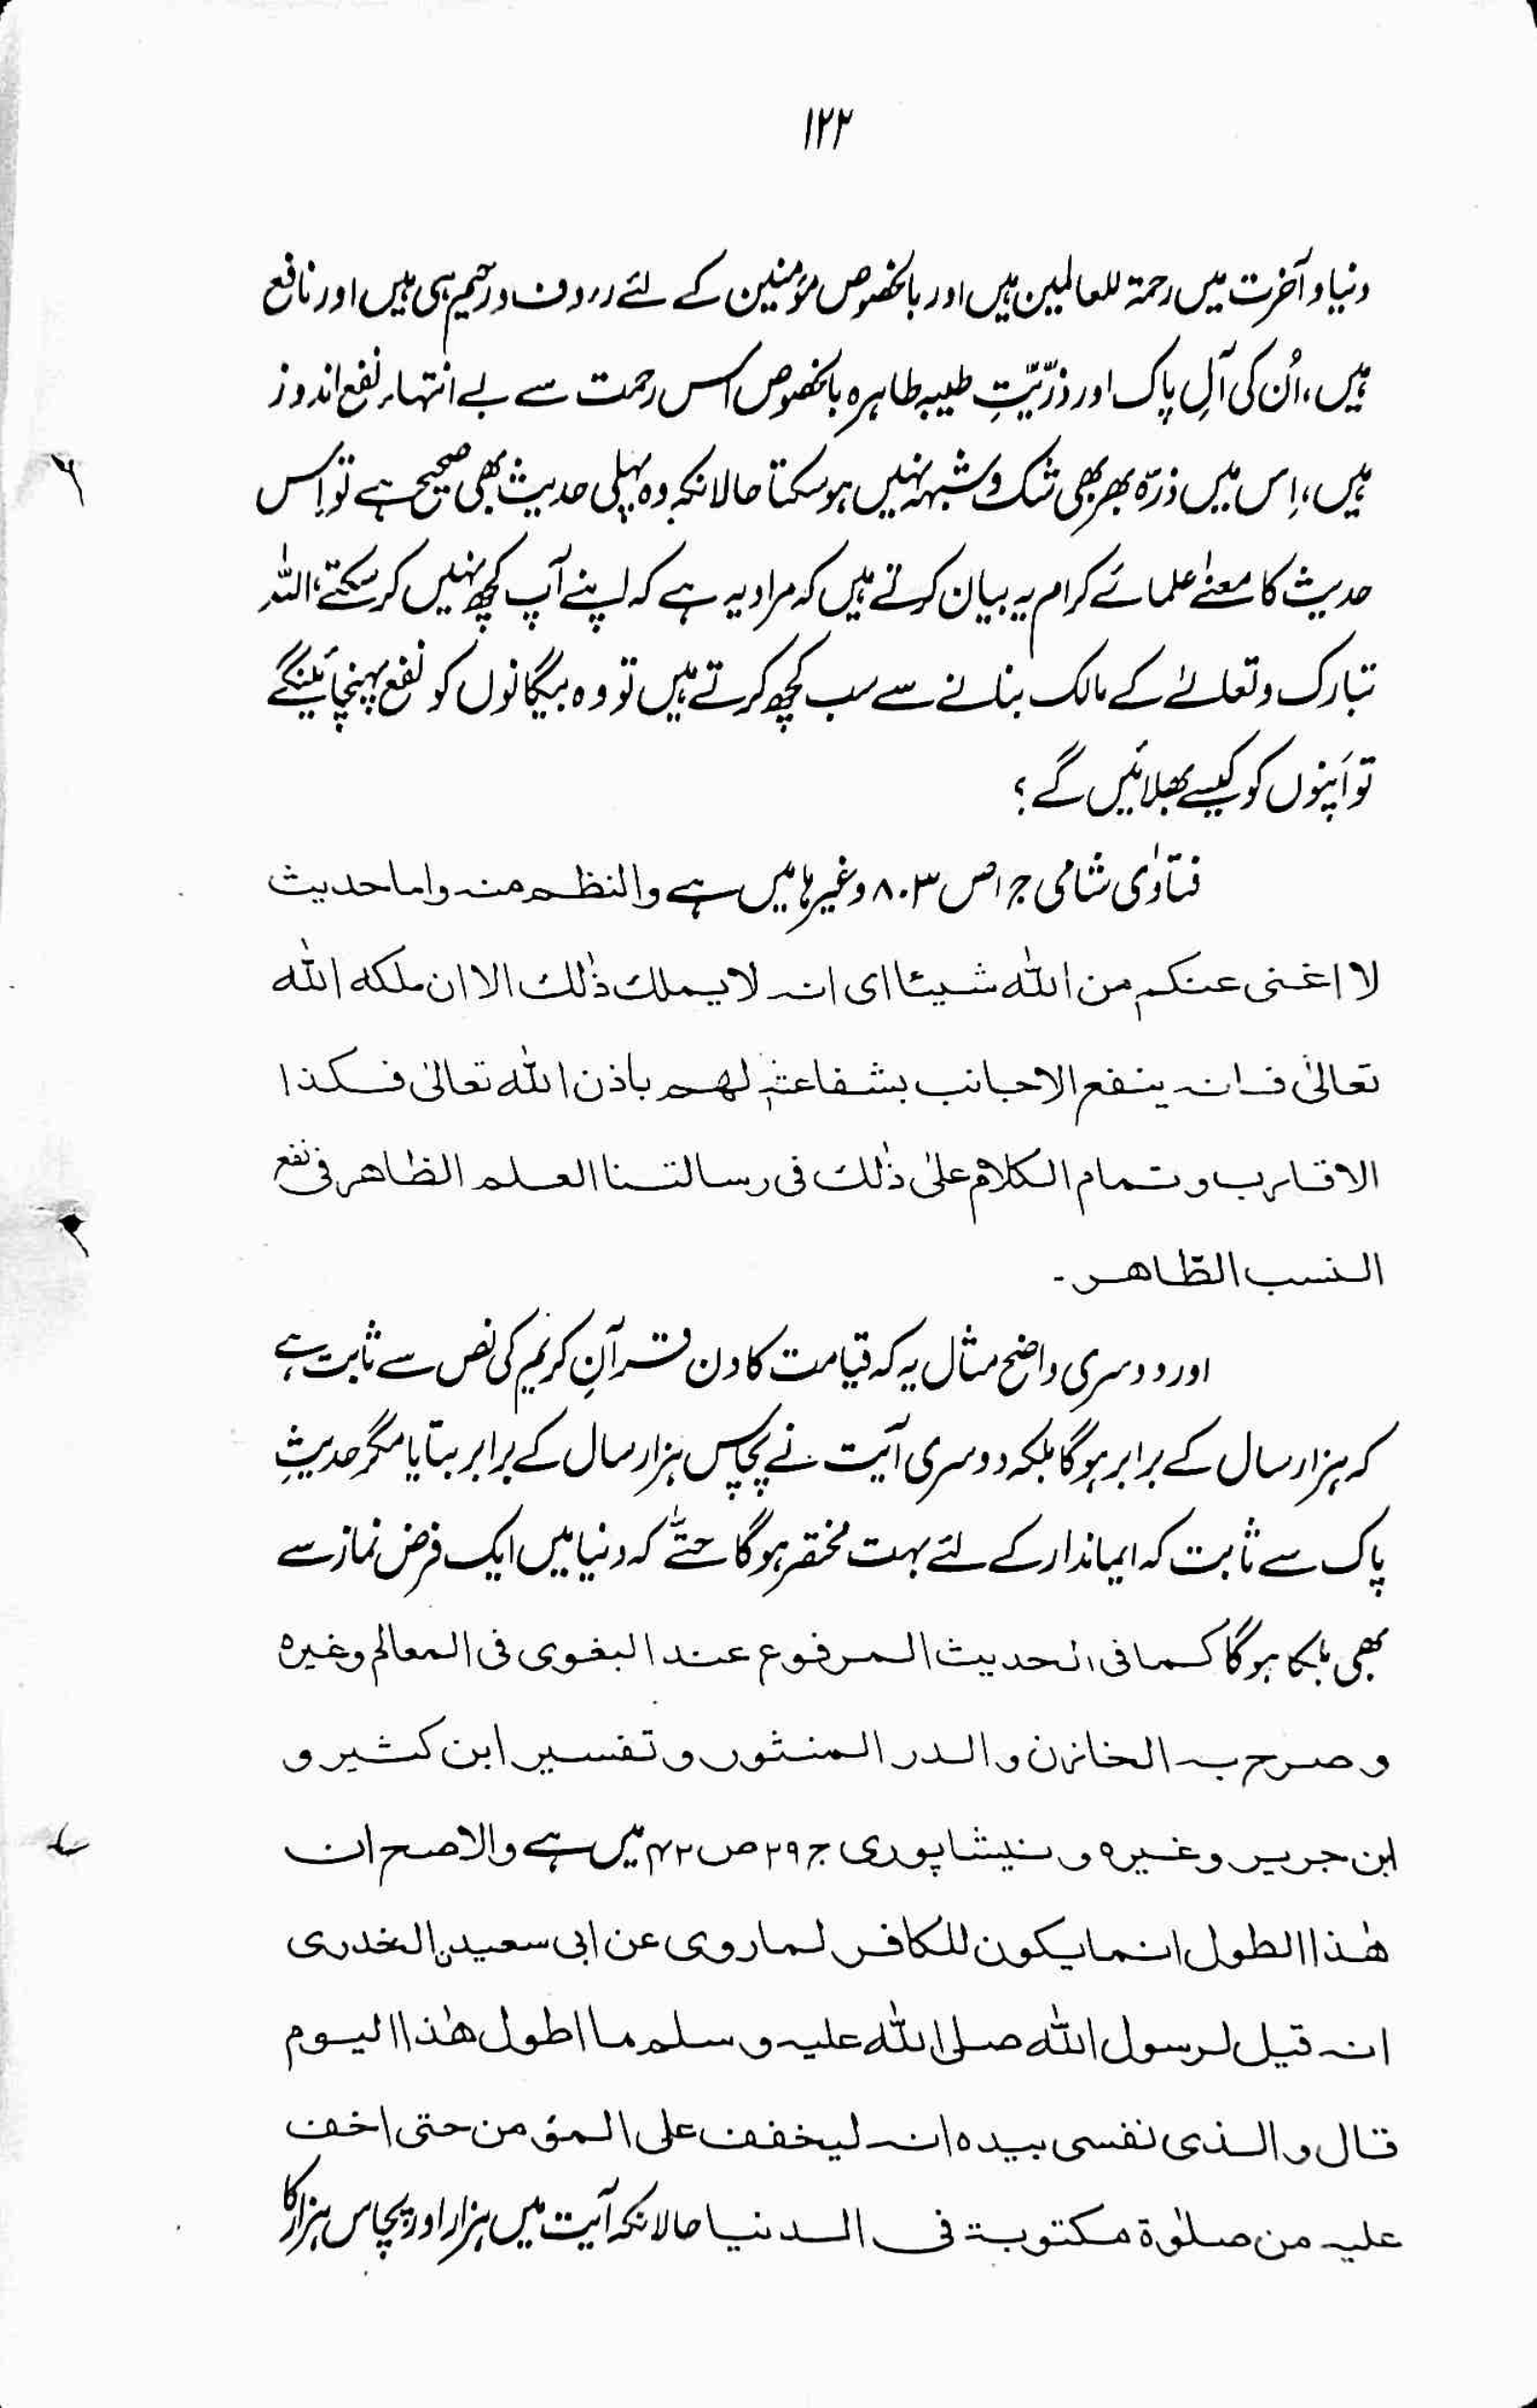 ۱۲۲
دنیا و آخرت میں رحمۃ للعالمین ہیں اور بالخصوص مؤمنین کے لئے رءوف و رحیم ہی ہیں اور نافع
ہیں، اُن کی آلِ پاک اور ذرّیّتِ طیبہ طاہرہ بالخصوص اس رحمت سے بے انتہاء نفع اندوز
ہیں، اِس میں ذرّہ بھر بھی شک و شبہہ نہیں ہو سکتا حالانکہ وہ پہلی حدیث بھی صحیح ہے تو اِس
حدیث کا معنےٰ علمائے کرام یہ بیان کرتے ہیں کہ مراد یہ ہے کہ اپنے آپ کچھ نہیں کر سکتے، اللہ
تبارک و تعالےٰ کے مالک بنانے سے سب کچھ کرتے ہیں تو وہ بیگانوں کو نفع پہنچائینگے
تو اَپنوں کو کیسے بھلائیں گے ؟
فتاوٰی شامی ج ۱ ص ۸۰۳ وغیرہا میں ہے والنظم منہ واما حدیث
لا اغنی عنکم من اللہ شیئا ای انہ لا یملک ذٰلک الا ان ملکہ اللہ
تعالیٰ فانہ ینفع الاجانب بشفاعتہ لھم باذن اللہ تعالیٰ فکذا
الاقارب و تمام الکلام علیٰ ذٰلک فی رسالتنا العلم الظاھر فی نفع
النسب الطّاھر۔
اور دوسری واضح مثال یہ کہ قیامت کا دن قرآنِ کریم کی نص سے ثابت ہے
کہ ہزار سال کے برابر ہوگا بلکہ دوسری آیت نے پچاس ہزار سال کے برابر بتایا مگر حدیثِ
پاک سے ثابت کہ ایماندار کے لئے بہت مختصر ہوگا حتّٰے کہ دنیا میں ایک فرض نماز سے
بھی ہلکا ہوگا کما فی الحدیث المرفوع عند البغوی فی المعالم وغیرہ
و صرح بہ الخازن والدر المنثور و تفسیر ابن کثیر و
ابن جریر وغیرہ و نیشاپوری ج ۲۹ ص ۴۲ میں ہے والاصح ان
ھٰذا الطول انما یکون للکافر لما روی عن ابی سعید ن الخدری
انہ قیل لرسول اللہ صلی اللہ علیہ وسلم ما اطول ھٰذا الیوم
قال والذی نفسی بیدہ انہ لیخفف علی المؤمن حتی اخف
علیہ من صلٰوۃ مکتوبۃ فی الدنیا حالانکہ آیت میں ہزار اور پچاس ہزار کا